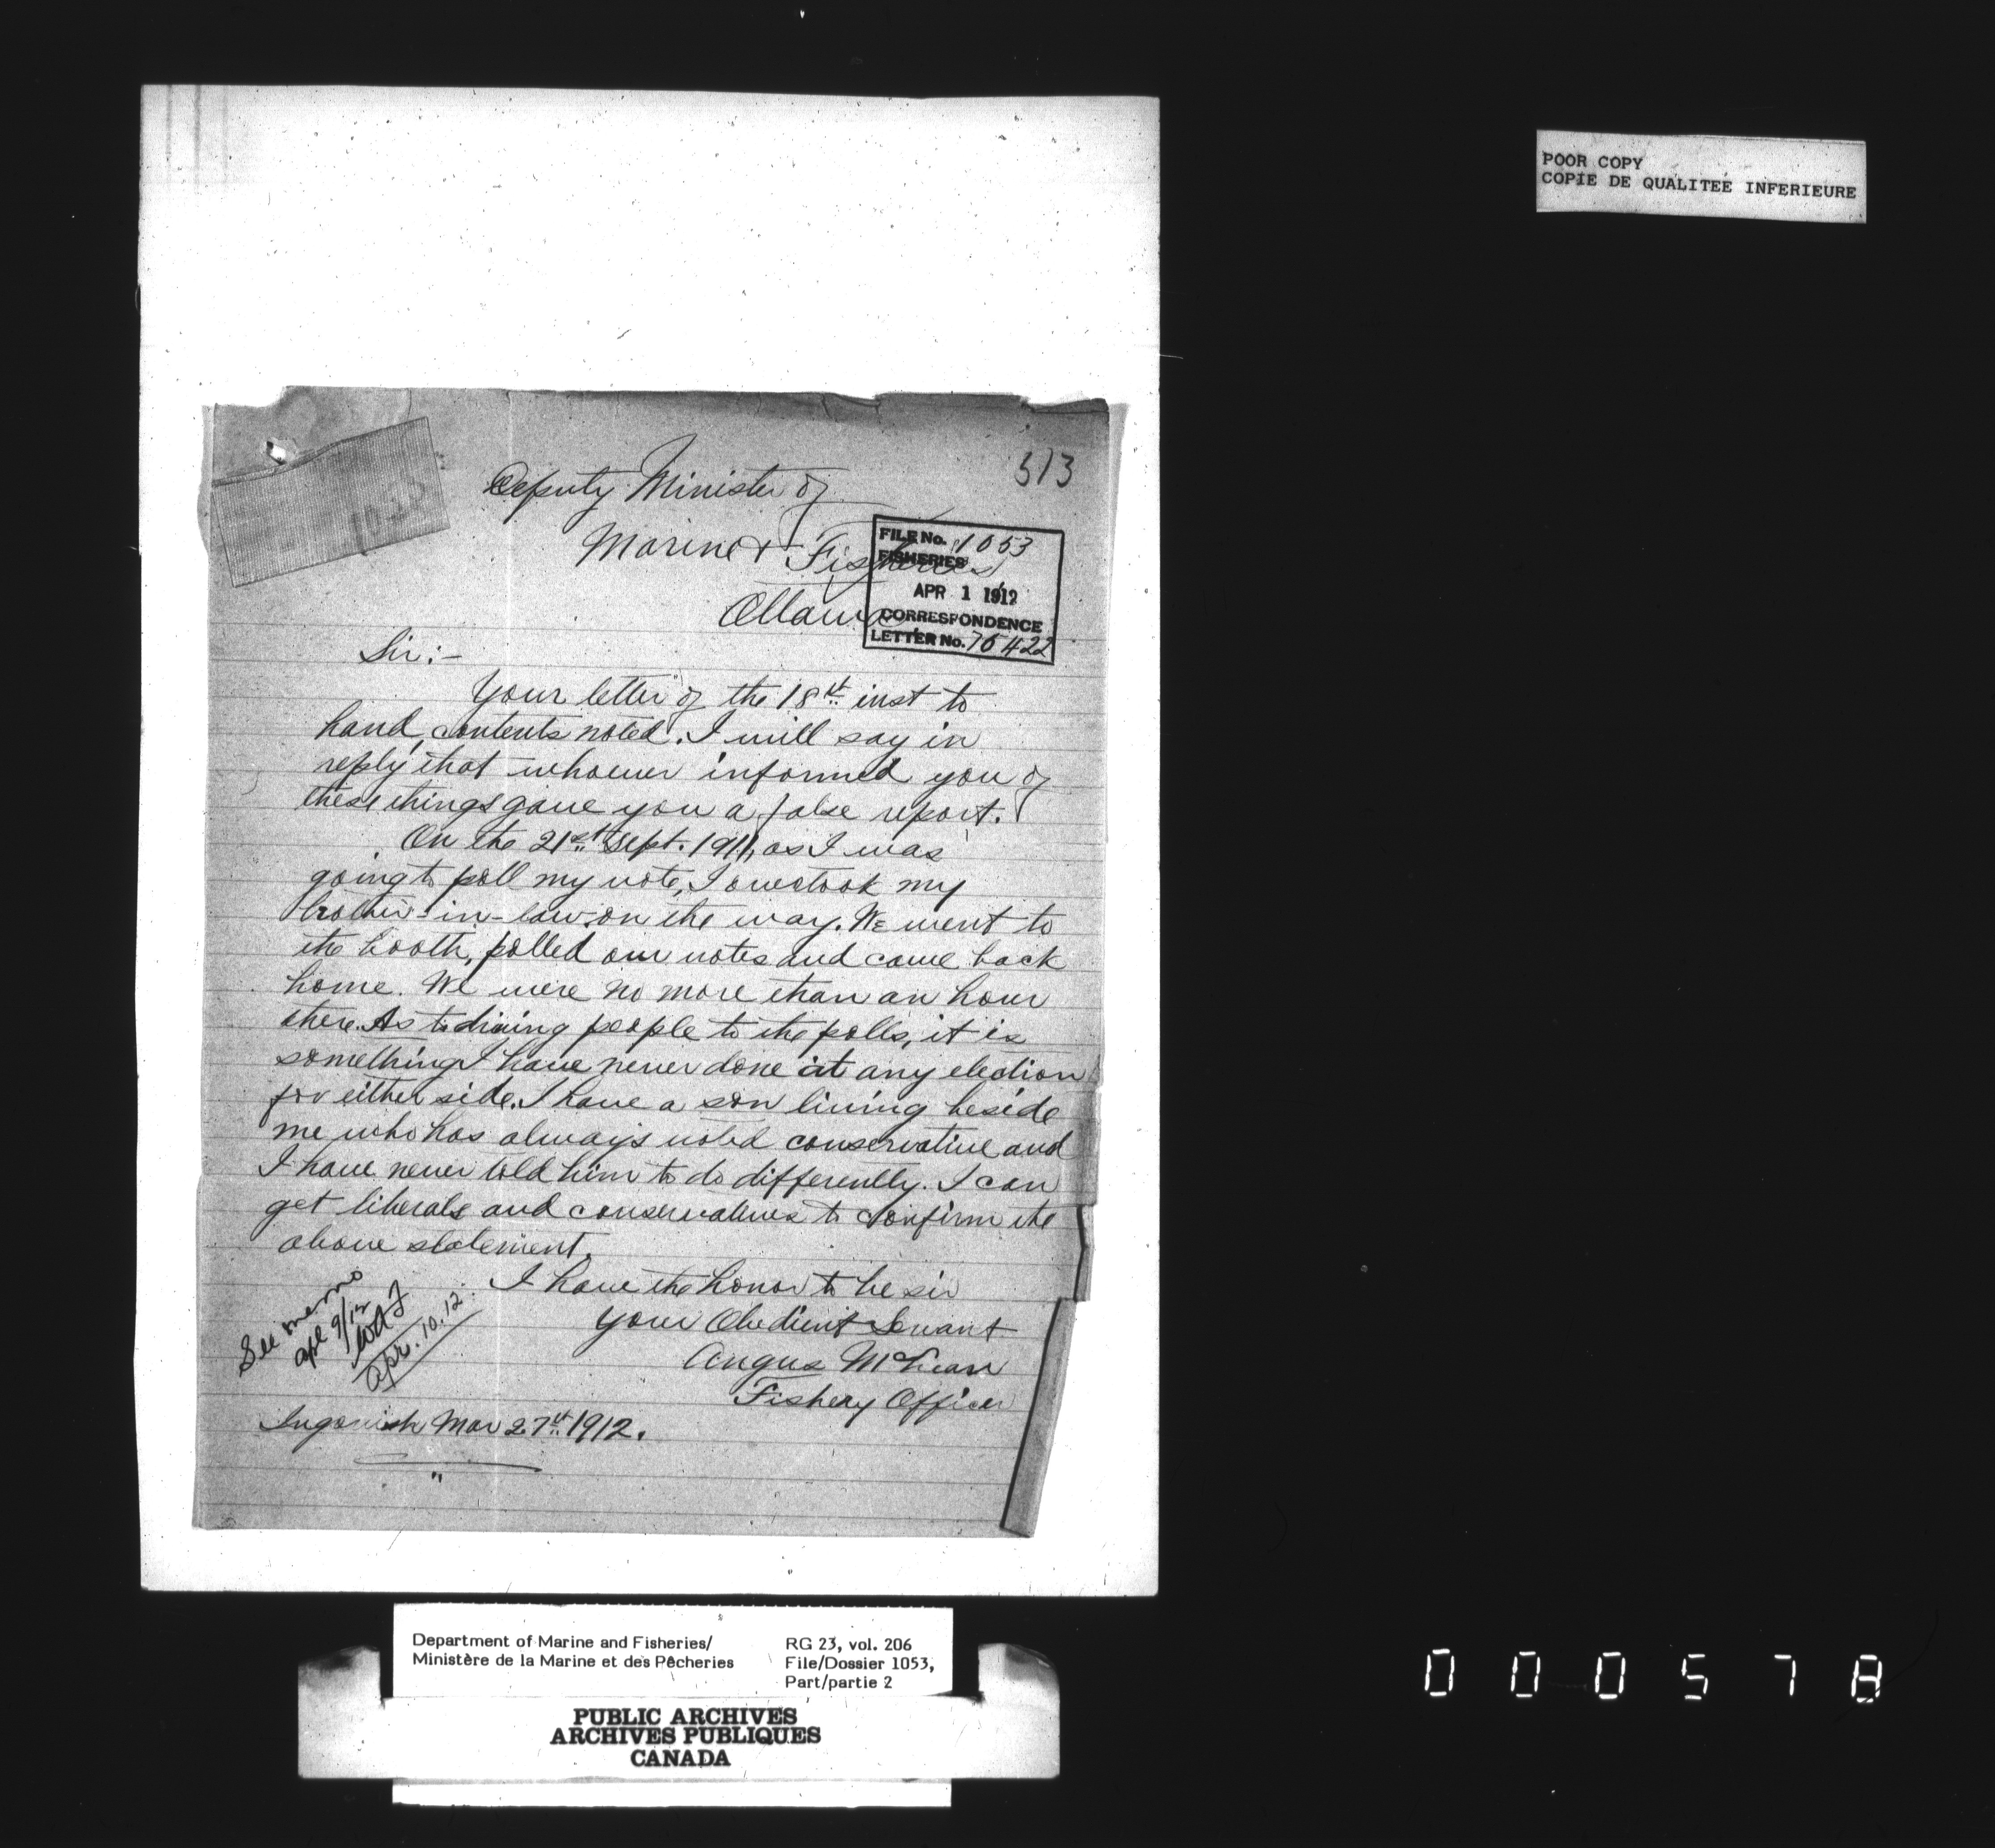 POOR COPY
COPIE DE QUALITEE INFERIEURE
513
Deputy Minister of
Marine & Fisheries
Ottawa
FILE No. 1053
FISHERIES
APR 1 1912
CORRESPONDENCE
LETTER No. 76422
Sir:-
Your letter of the 18th inst to
hand, contents noted. I will say in
reply that whoever informed you of
these things gave you a false report.
On the 21st Sept. 1911, as I was
going to poll my vote, I overtook my
brother-in-law on the way. We went to
the booth, polled our votes and came back
home. We were no more than an hour
there. As to driving people to the polls, it is
something I have never done at any election
for either side. I have a son living beside
me who has always voted conservative and
I have never told him to do differently. I can
get liberals and conservatives to confirm the
above statement.
I have the honor to be sir
your Obedient Servant
Angus McLean
Fishery Officer
See memo
apl 9/12
apr. 10.12
Ingonish Mar 27th 1912.
Department of Marine and Fisheries/
Ministère de la Marine et des Pêcheries
RG 23, vol. 206
File/Dossier 1053,
Part/partie 2
PUBLIC ARCHIVES
ARCHIVES PUBLIQUES
CANADA
000578